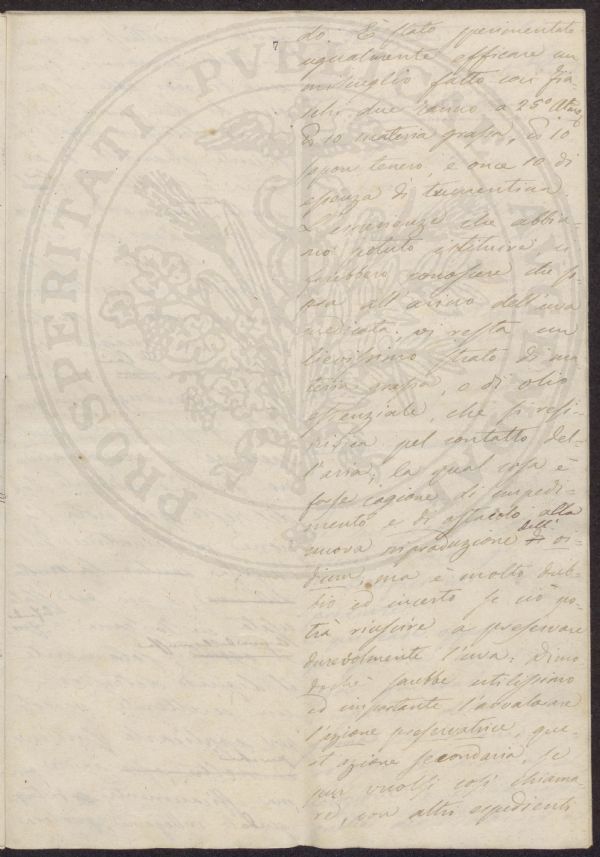 7
do. È stato sperimentato
ugualmente efficace un
miscuglio fatto con fia-
schi due ranno a 25° 
10 materia grassa, 10
sapone tenero, e once 10 di
essenza di trementina
L'esperienze che abbia-
mo potuto istituire, ci
farebbero conoscere che so-
pra all'acino dell'uva
medicata, vi resta un
lievissimo strato di ma
teria grassa, o di olio
essenziale, che si resi-
nifica pel contatto del-
l'aria; la qual cosa è
forse cagione di impedi-
mento e di ostacolo alla
nuova riproduzione dell' oi-
dium, ma è molto dub-
bio ed incerto se ciò po-
trà riuscire a preservare
durevolmente l'uva; Dimo
dochè sarebbe utilissimo
ed importante l'avvalorare
l'azione preservatrice, que-
st'azione secondaria, se
pur vuolsi così chiama-
re, con altri espedienti
PROSPERITATI PVBLICAE